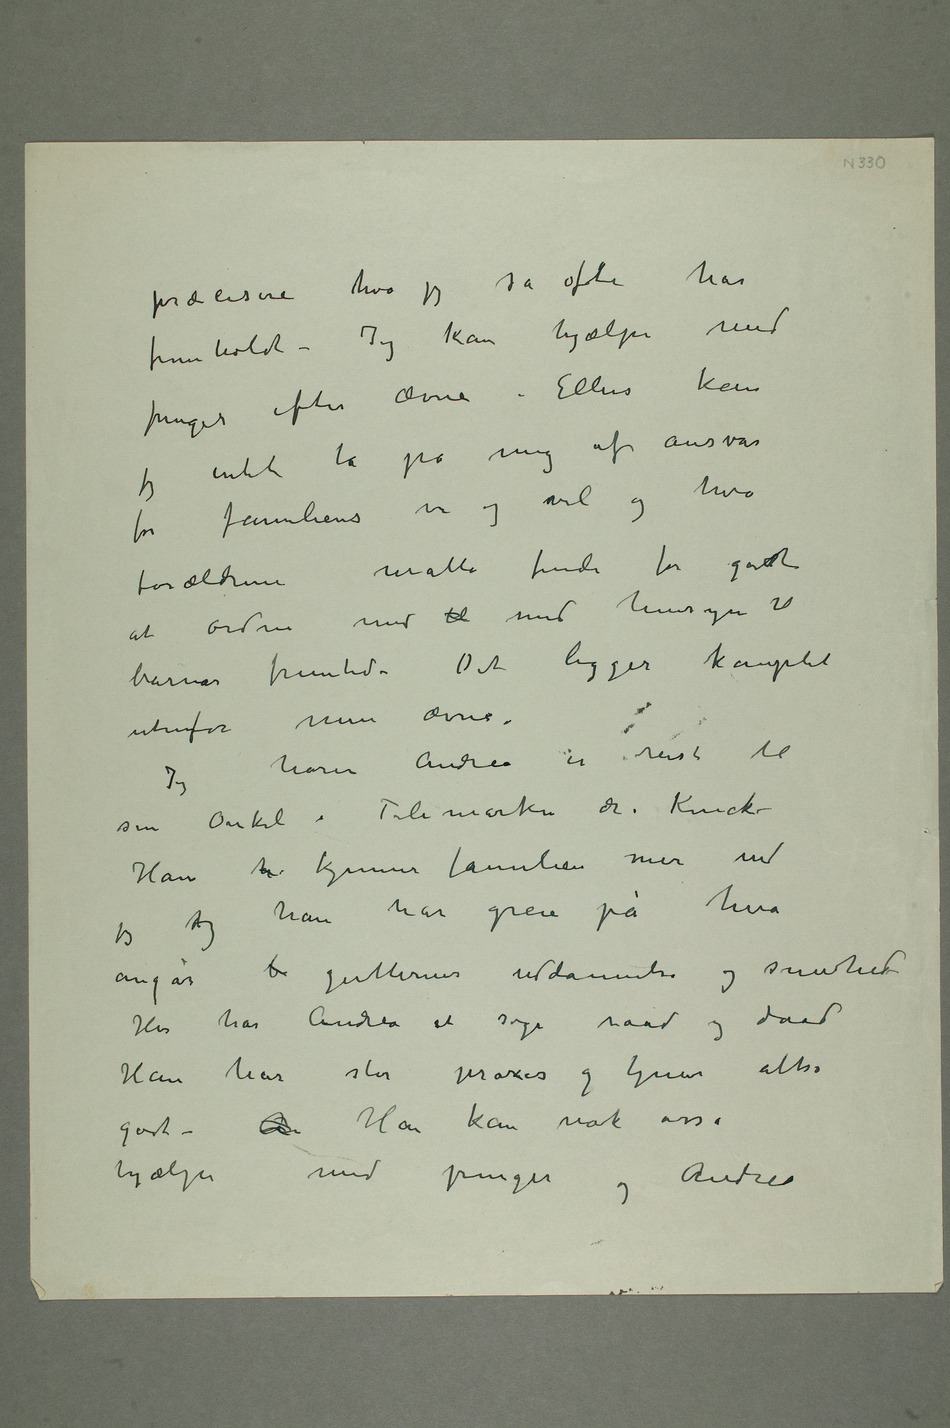 N 330
præcisere hva jeg så ofte har
fremholdt – Jeg kan hjælpe med
penger efter ævne – Ellers kan
jeg intet ta på meg af ansvar
for familiens ve og vel og hva
forældrene måtte finde for godt
at ordne med til med hensyn til
barnas fremtid – Det ligger komplet
utenfor min ævne.
Jeg hører Andrea er reist til
sin Onkel i Telemarken dr. Kinck –
Han h kjenner familien mer end
jeg og han har greie på hva
angår b gutternes uddannelse og sundhed
Her har Andrea at søge raad og daad
Han har stor praxis og tjener altså
godt – An Han kan nok også
hjælpe med penger og Andrea